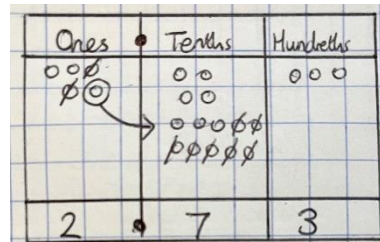 Ones Tenths Hundreths
2 . 7 3